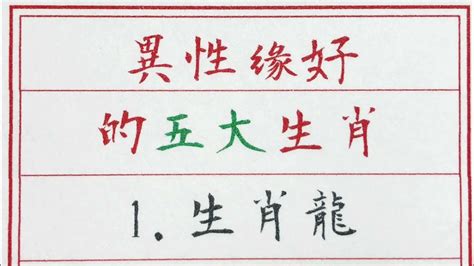 異性缘好
的五大生肖
1.生肖龍